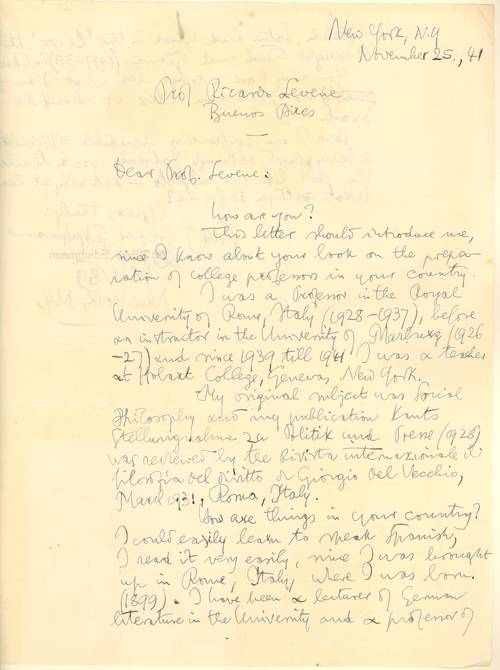 New York, N.Y
November 25., 41
Prof. Ricardo Levene
Buenos Aires
Dear Prof. Levene:
how are you?
This letter should introduce me,
since I know about your book on the prepa-
ration of college professors in your country.
I was a Professor in the Royal
University of Rome, Italy (1928-1937), before
an instructor in the University of Marburg (1926
-27) and since 1939 till 1941 I was a teacher
at Hobart College, Geneva, New York.
My original subject was Social
Philosophy and my publication Kants
Stellungnahme zu Politik und Presse (1928)
was reviewed by the Rivista internazionale di
filosofia del diritto di Giorgio del Vecchio,
March 1931, Roma, Italy.
How are things in your country?
I could easily learn to speak Spanish,
I read it very easily, since I was brought
up in Rome, Italy, where I was born.
(1899). I have been a lecturer of German
literature in the University and a professor of